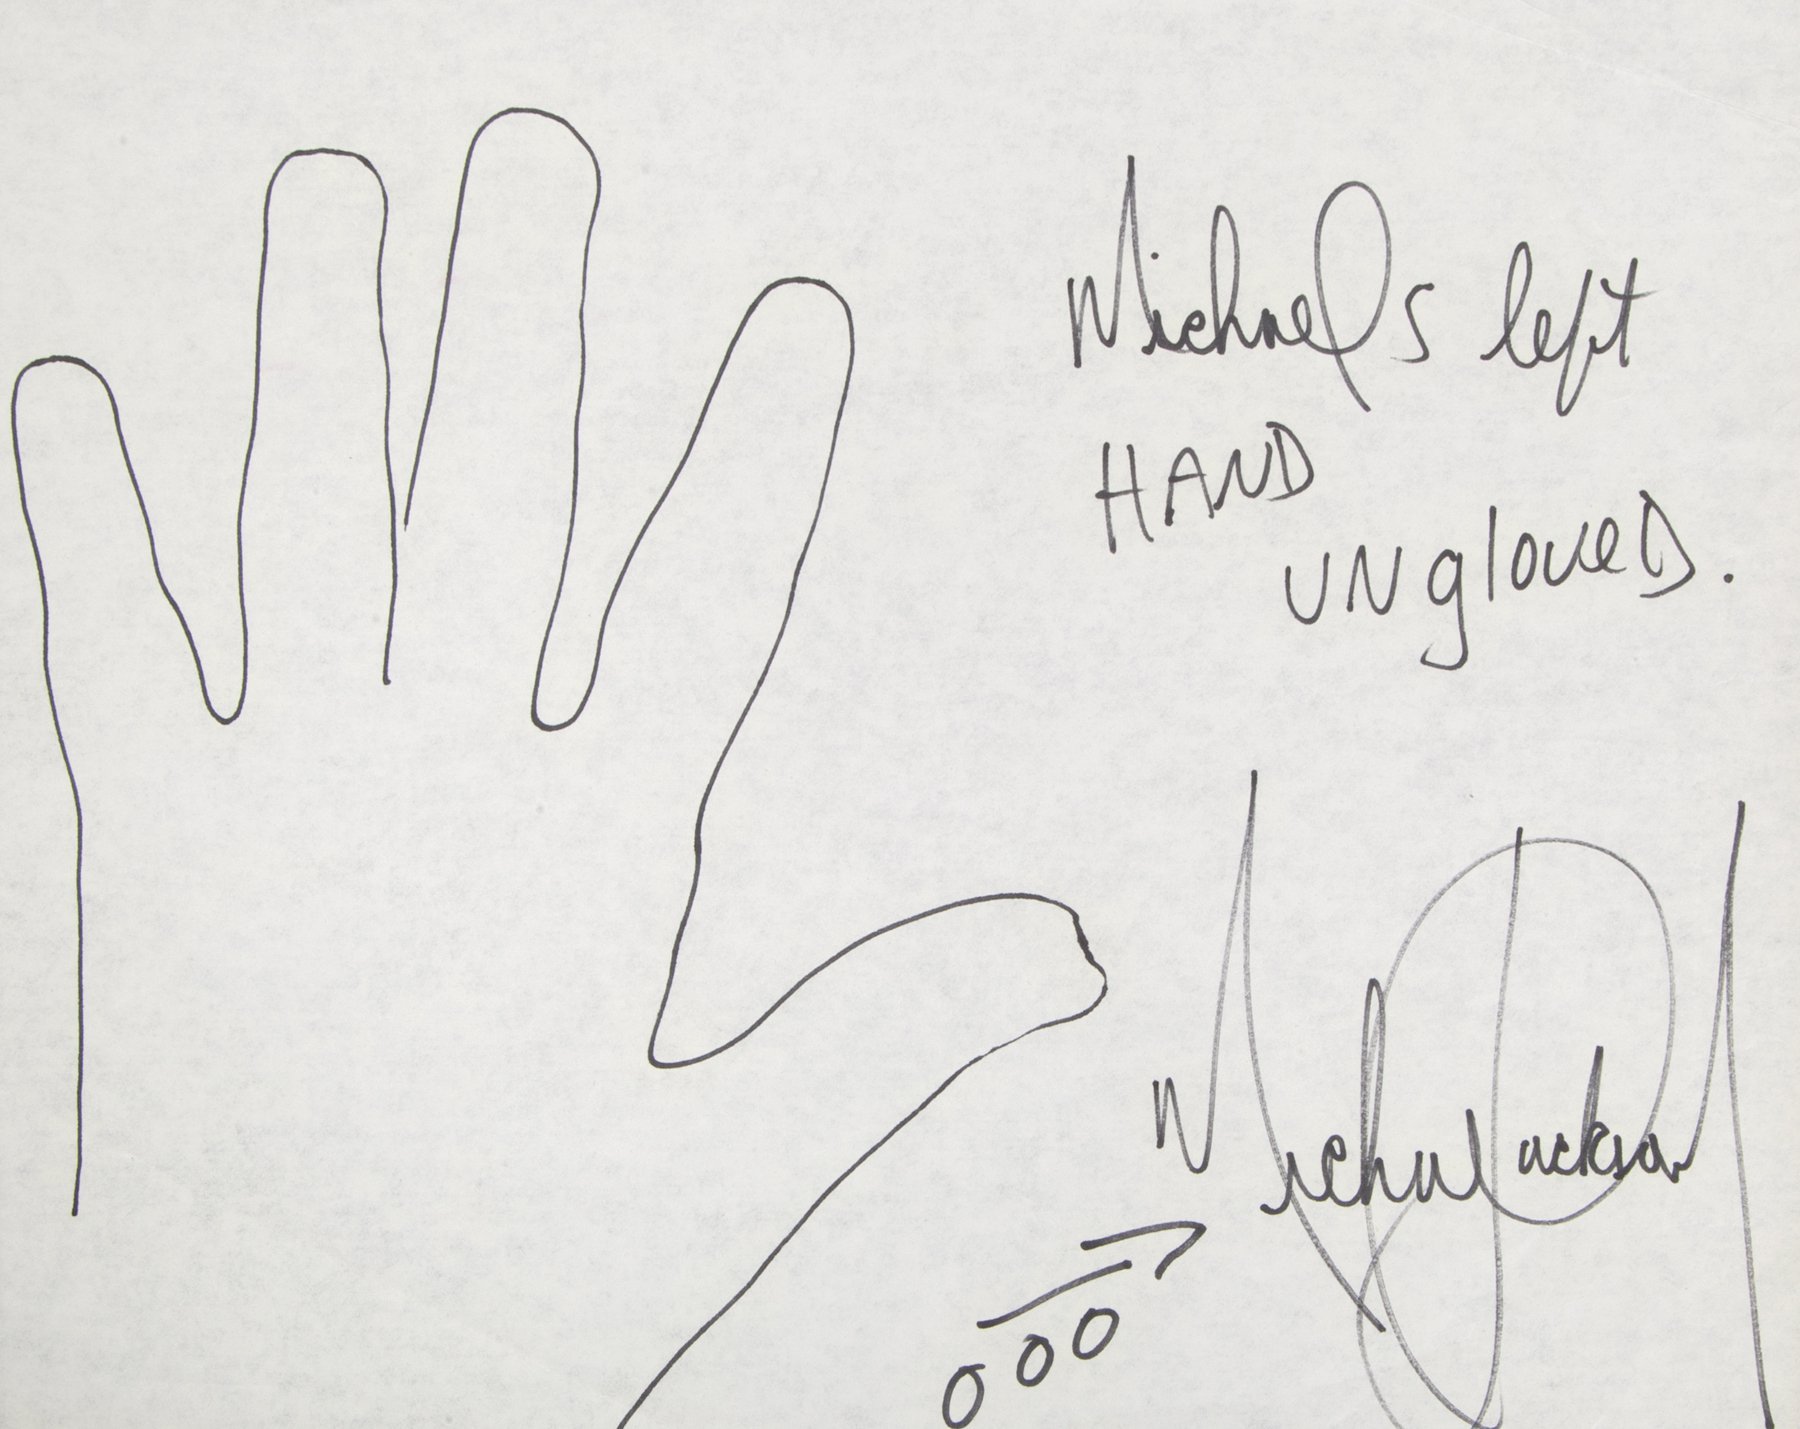 Michaels left
HAND
UNgloveD.
Michael Jackson
000